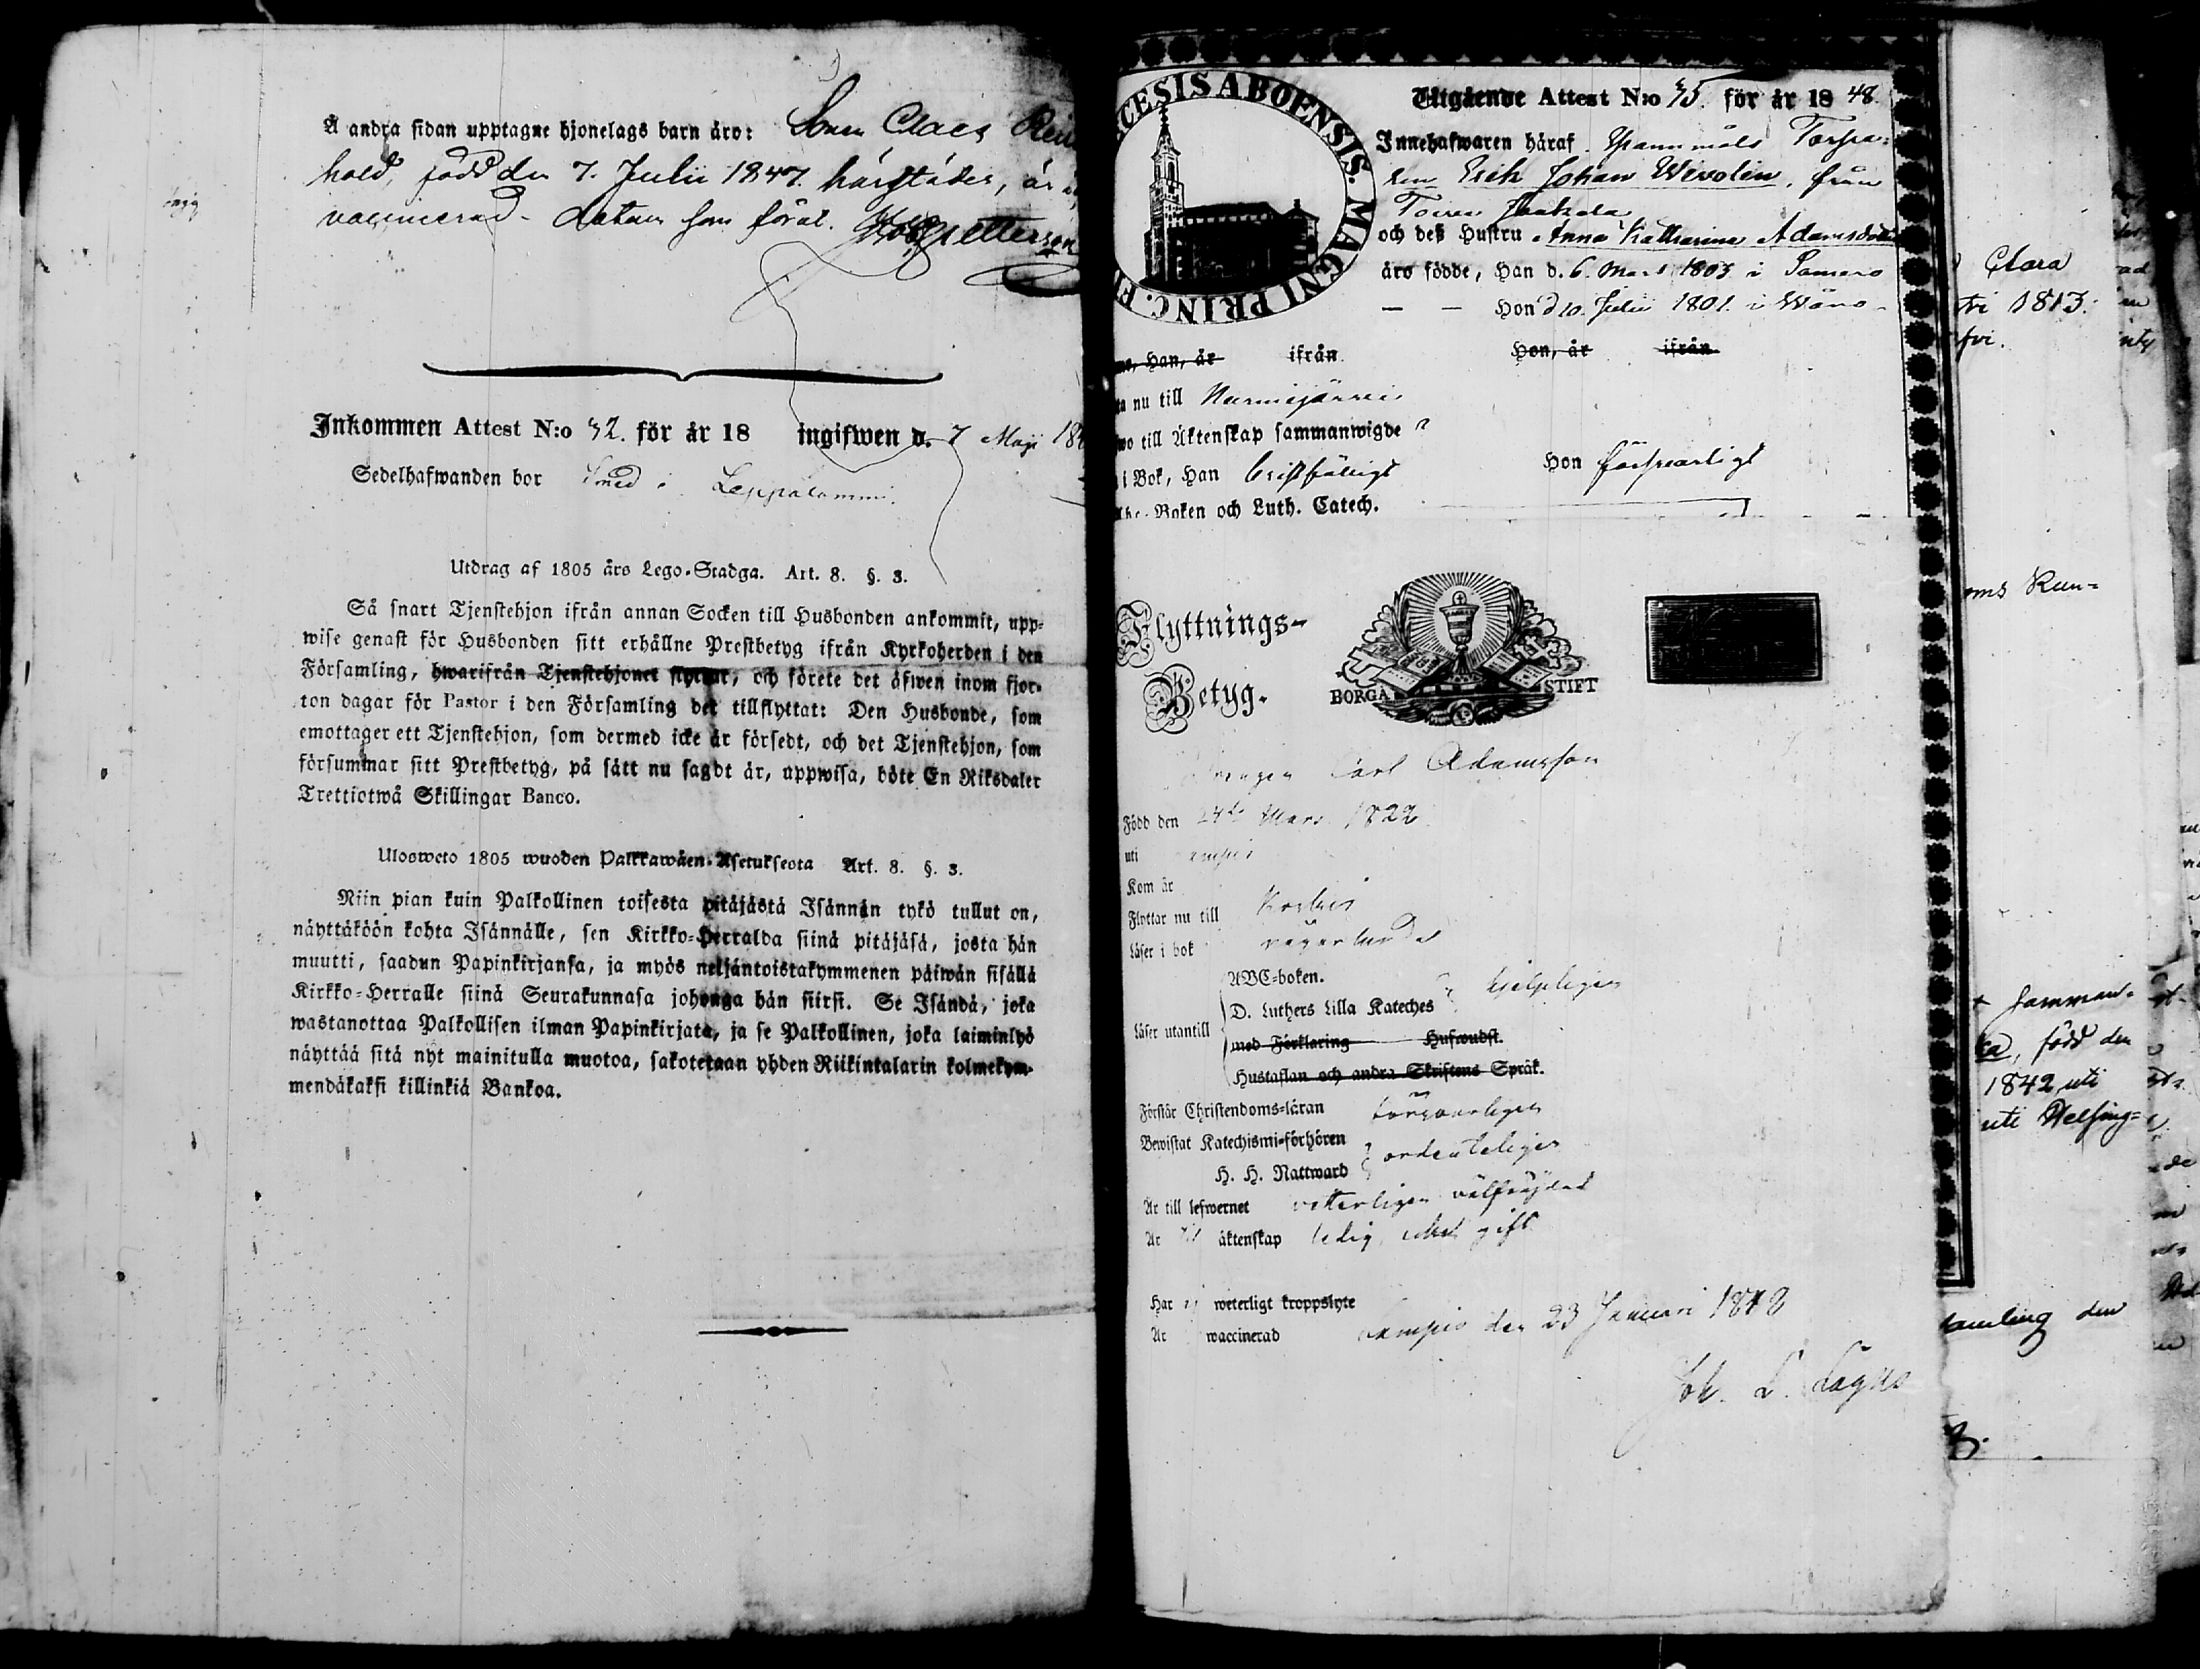 Å andra sidan upptagne hjonelags barn äro: Sonen Claes Rein
hold, född den 7. Julii 1847. härstädes, är
vaccinerad. datum som förut.
Inkommen Attest N:o 32. för år 18 ingifwen d. 7 Maji 18
Sedelhafwanden bor Smed i Leppälammi.
Utdrag af 1805 års Lego-Stadga. Art. 8. §. 3.
Så snart Tjenstehjon ifrån annan Socken till Husbonden ankommit, upp-
wise genast för Husbonden sitt erhållne Prestbetyg ifrån Kyrkoherden i den
Församling, hwarifrån Tjenstehjonet flyttat, och förete det äfwen inom fjor-
ton dagar för Pastor i den Församling det tillflyttat: Den Husbonde, som
emottager ett Tjenstehjon, som dermed icke är försedt, och det Tjenstehjon, som
försummar sitt Prestbetyg, på sätt nu sagdt är, uppwisa, böte En Riksdaler
Trettiotwå Skillingar Banco.
Ulosweto 1805 wuoden Palkkawäen-Asetuksesta Art. 8. §. 3.
Niin pian kuin Palkollinen toisesta pitäjästä Isännän tykö tullut on,
näyttäköön kohta Isännälle, sen Kirkko-Herralda siinä pitäjäsä, josta hän
muutti, saadun Papinkirjansa, ja myös neljäntoistakymmenen päiwän sisällä
Kirkko-Herralle siinä Seurakunnasa johonga hän siirsi. Se Isändä, joka
wastanottaa Palkollisen ilman Papinkirjata, ja se Palkollinen, joka laiminlyö
näyttää sitä nyt mainitulla muotoa, sakotetaan yhden Riikintalarin kolmekym-
mendäkaksi killinkiä Bankoa.
CESIS ABOENSIS. MAGNI PRINC. F
Utgående Attest N:o 35. för år 18 48.
Innehafwaren häraf Spannmåls Torpa-
ren Erich Johan Wivolin, från
och deß Hustru Anna Katharina Adamsdotter
äro födde, Han d. 6. Mars 1803 i Somero
— — Hon d 10. Julii 1801. i
Han, år ifrån Hon, år ifrån
nu till Nurmijärvi
till Äktenskap sammanwigde
i Bok, Han Bristfälligt Hon försvarligt
Boken och Luth. Catech.
Flyttnings-
Betyg.
BORGÅ STIFT
Drengen Carl Adamsson
Född den 24de Mars 1822
uti
Kom år
Flyttar nu till
Läser i bok
Läser utantill
ABC-boken.
D. Luthers Lilla Kateches hjelpligen
med Förklaring Hufwudst.
Hustaflan och andra Skriftens Språk.
Förstår Christendoms-läran försvarligen
Bewistat Katechismi-förhören
H. H. Nattward ordenteligen
Är till lefwernet vetterligen välfrejdad
Är till äktenskap ledig, icke gift
Har ej weterligt kroppslyte
Är waccinerad den 23 Januari 1848
Joh. L. Lagus
Clara
1813.
Run-
samman-
född den
1842 uti
uti Helsing-
samling den